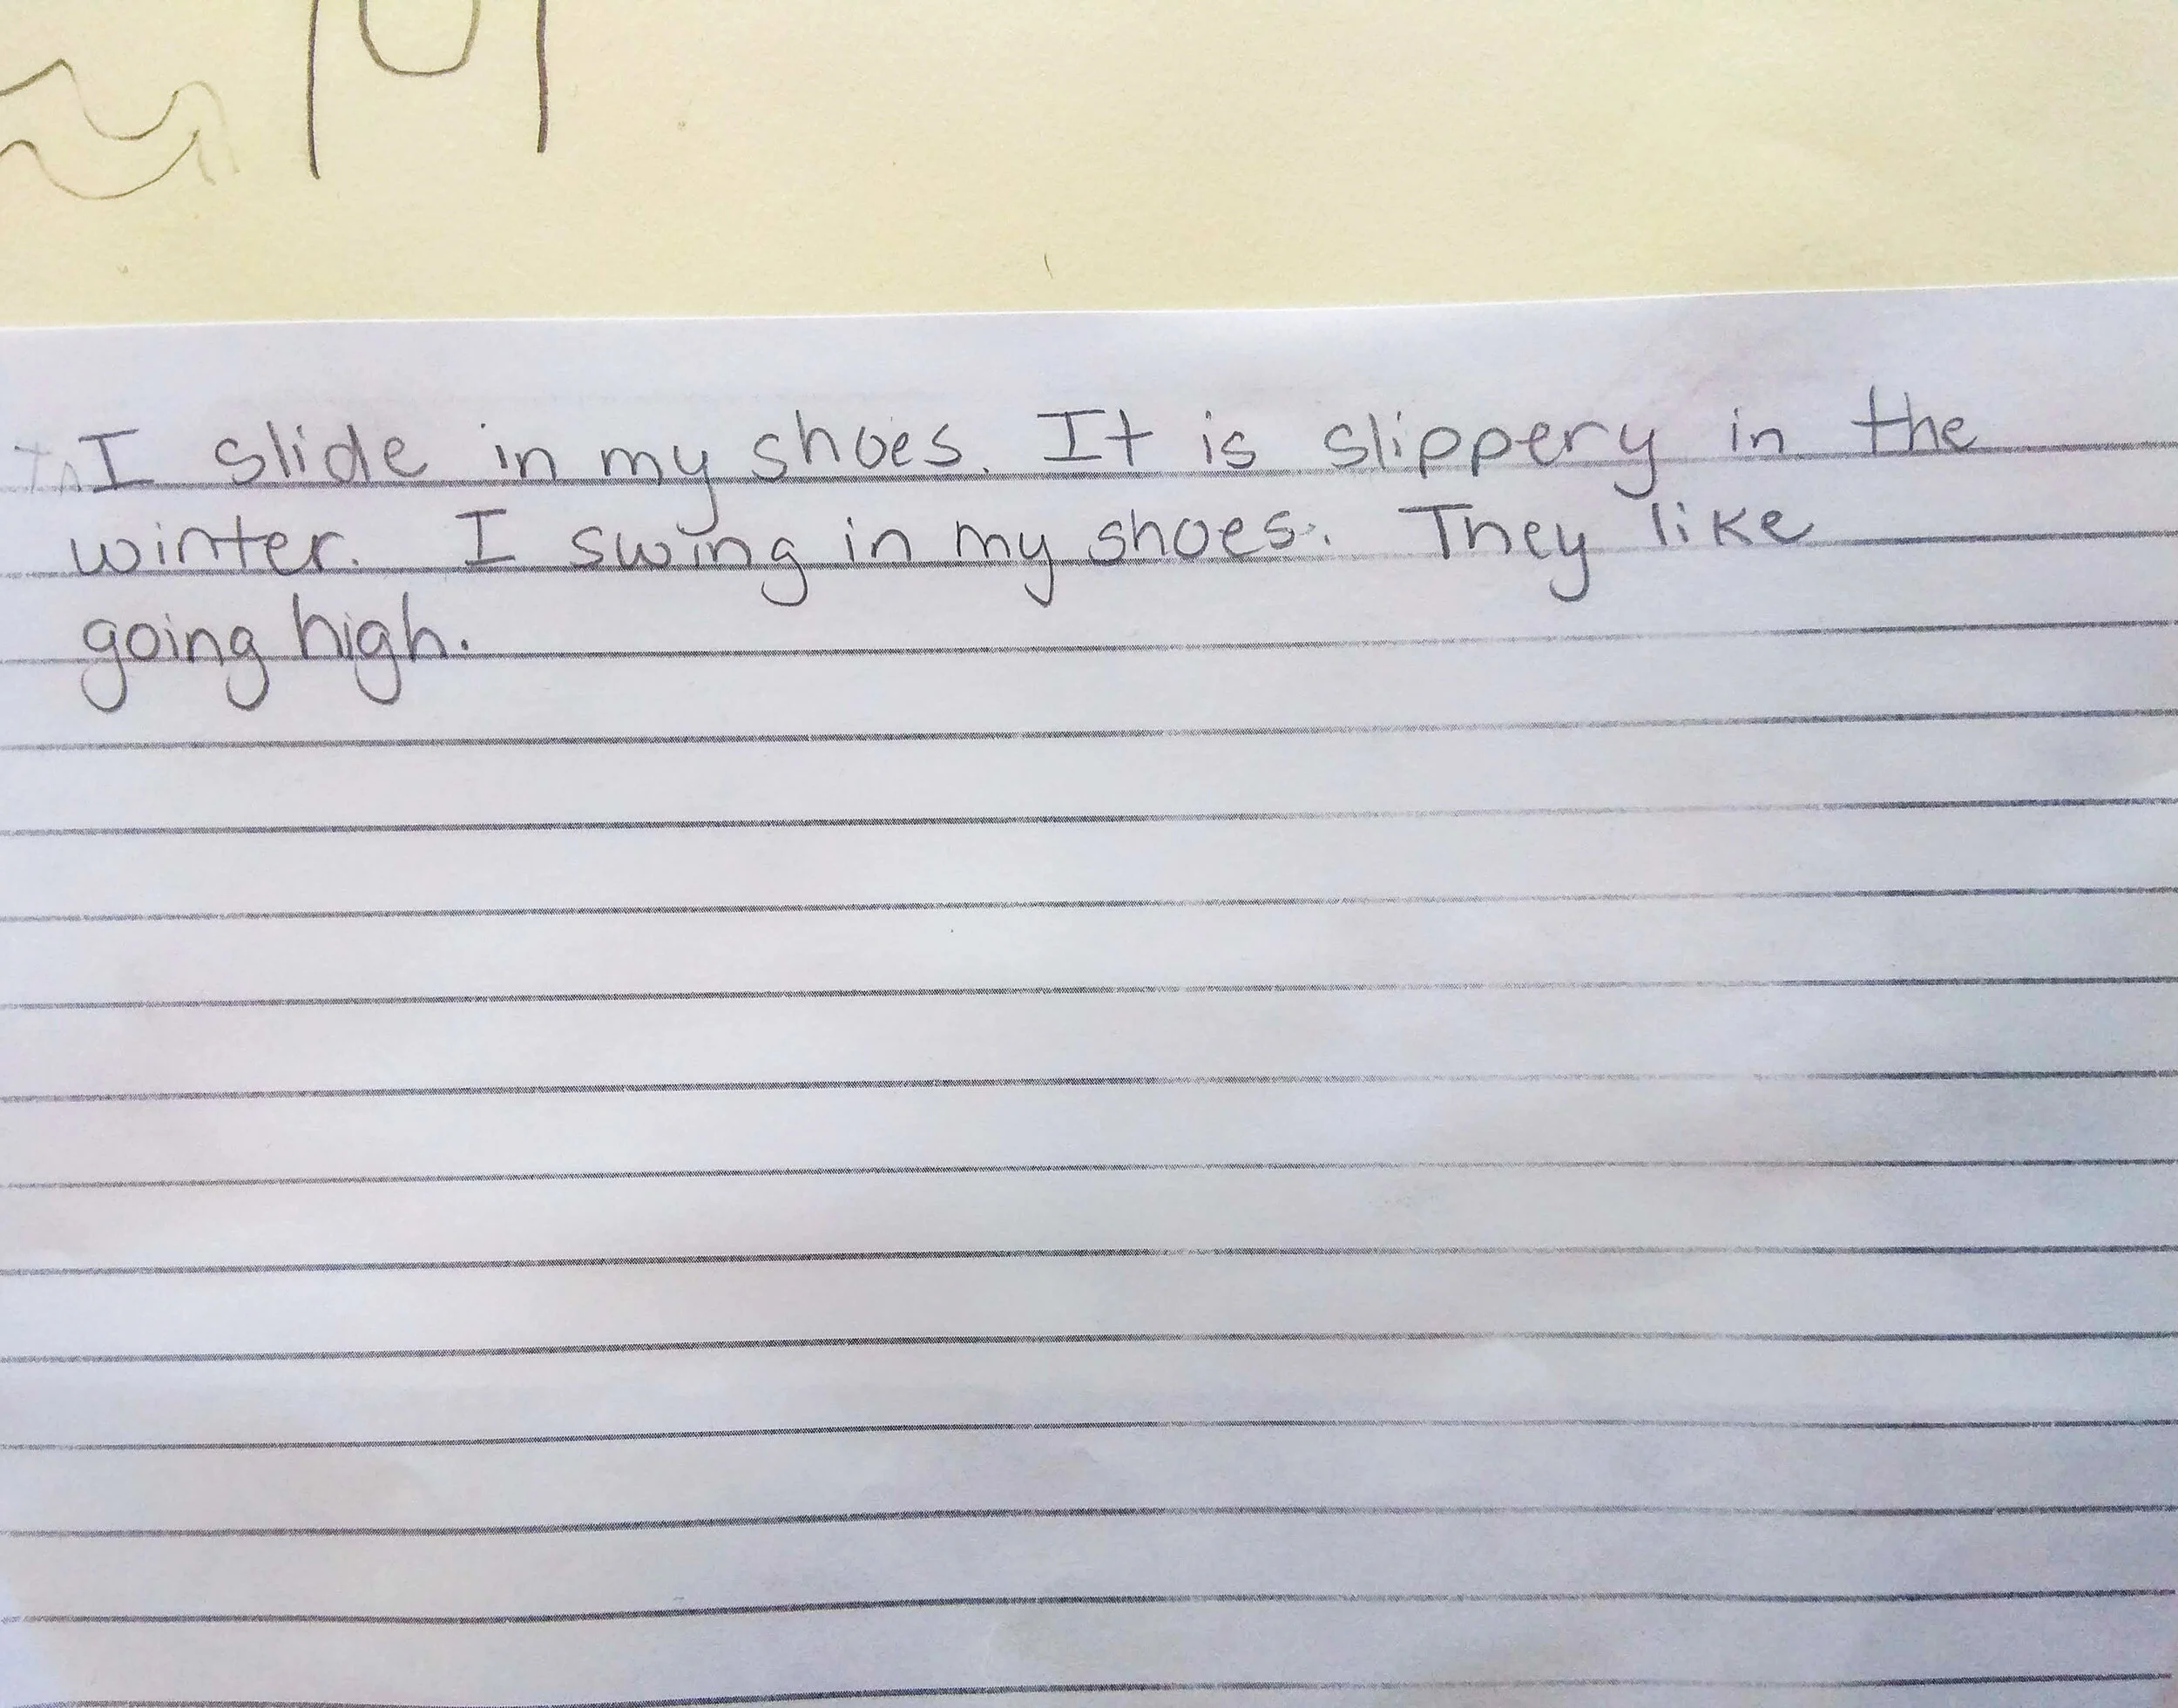 I slide in my shoes. It is slippery in the
winter. I swing in my shoes. They like
going high.